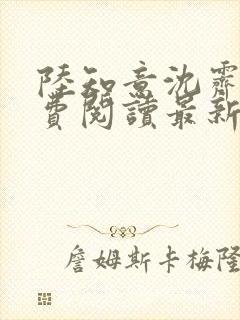 陸知意沈霽
費閱讀最新
詹姆斯卡梅隆